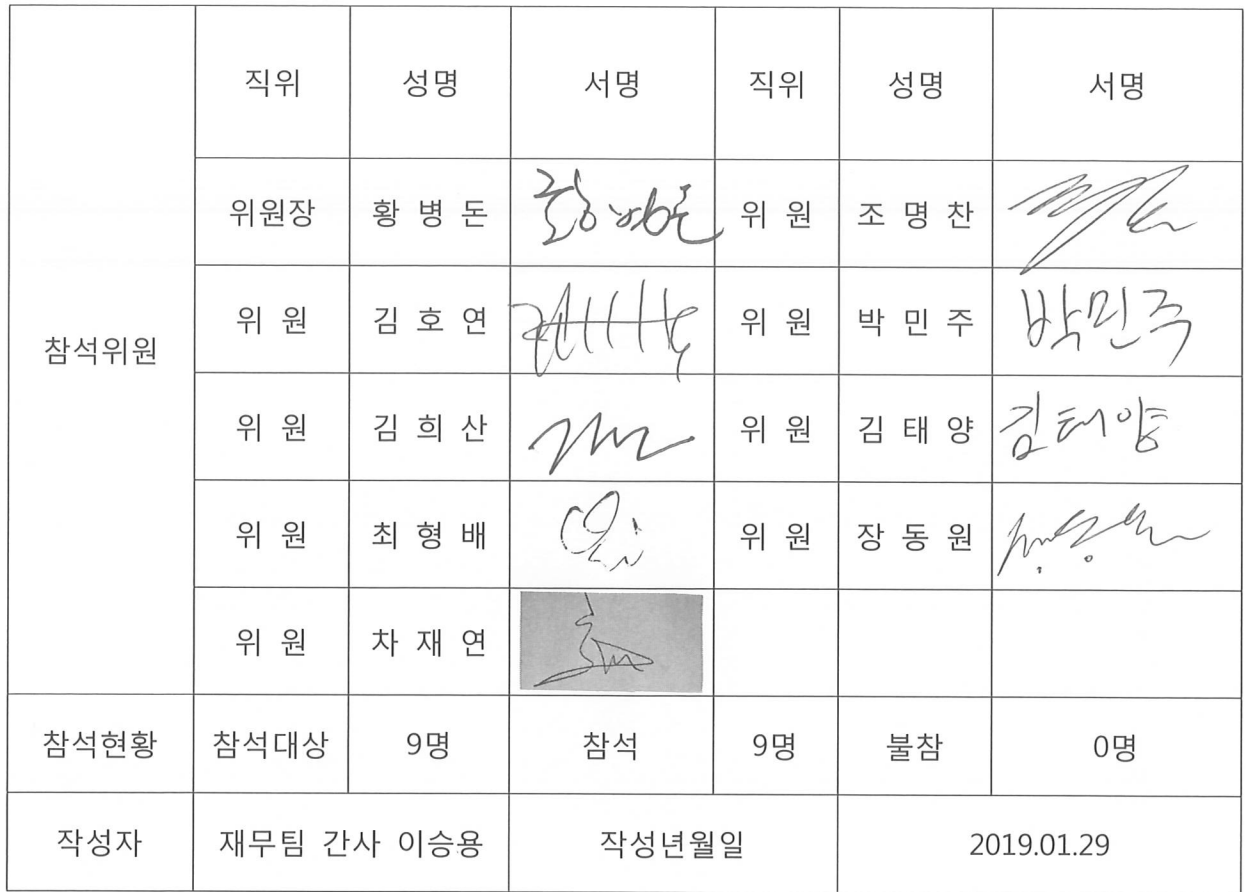 직위 성명 서명 직위 성명 서명
위원장 황 병 돈 황병돈 위 원 조 명 찬
참석위원
위 원 김 호 연 위 원 박 민 주 박민주
위 원 김 희 산 위 원 김 태 양 김태양
위 원 최 형 배 위 원 장 동 원
위 원 차 재 연
참석현황 참석대상 9명 참석 9명 불참 0명
작성자 재무팀 간사 이승용 작성년월일 2019.01.29